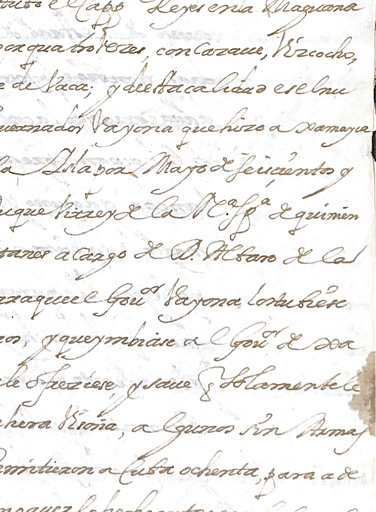 tubo el Capp.n Reyes en la Maguana
por quatro vezes, con Cazaue, Vizcocho,
e de Vaca; y de esta calidad es el nu
uernador Vayona que hizo a Xamayca
la Mayo de seiscientos y
uque Virrey de la N.a Sp.a, de quinien
itanes a cargo de D. Albaro de la
ra que el Gou.or Vayona lo tubiese
ron, y que ymbiase al Gou.or de Xa
le ofreziese, y saue solamente le
hera Visoña, a algunos sin Armas
emitieron a Cuba ochenta, para a de